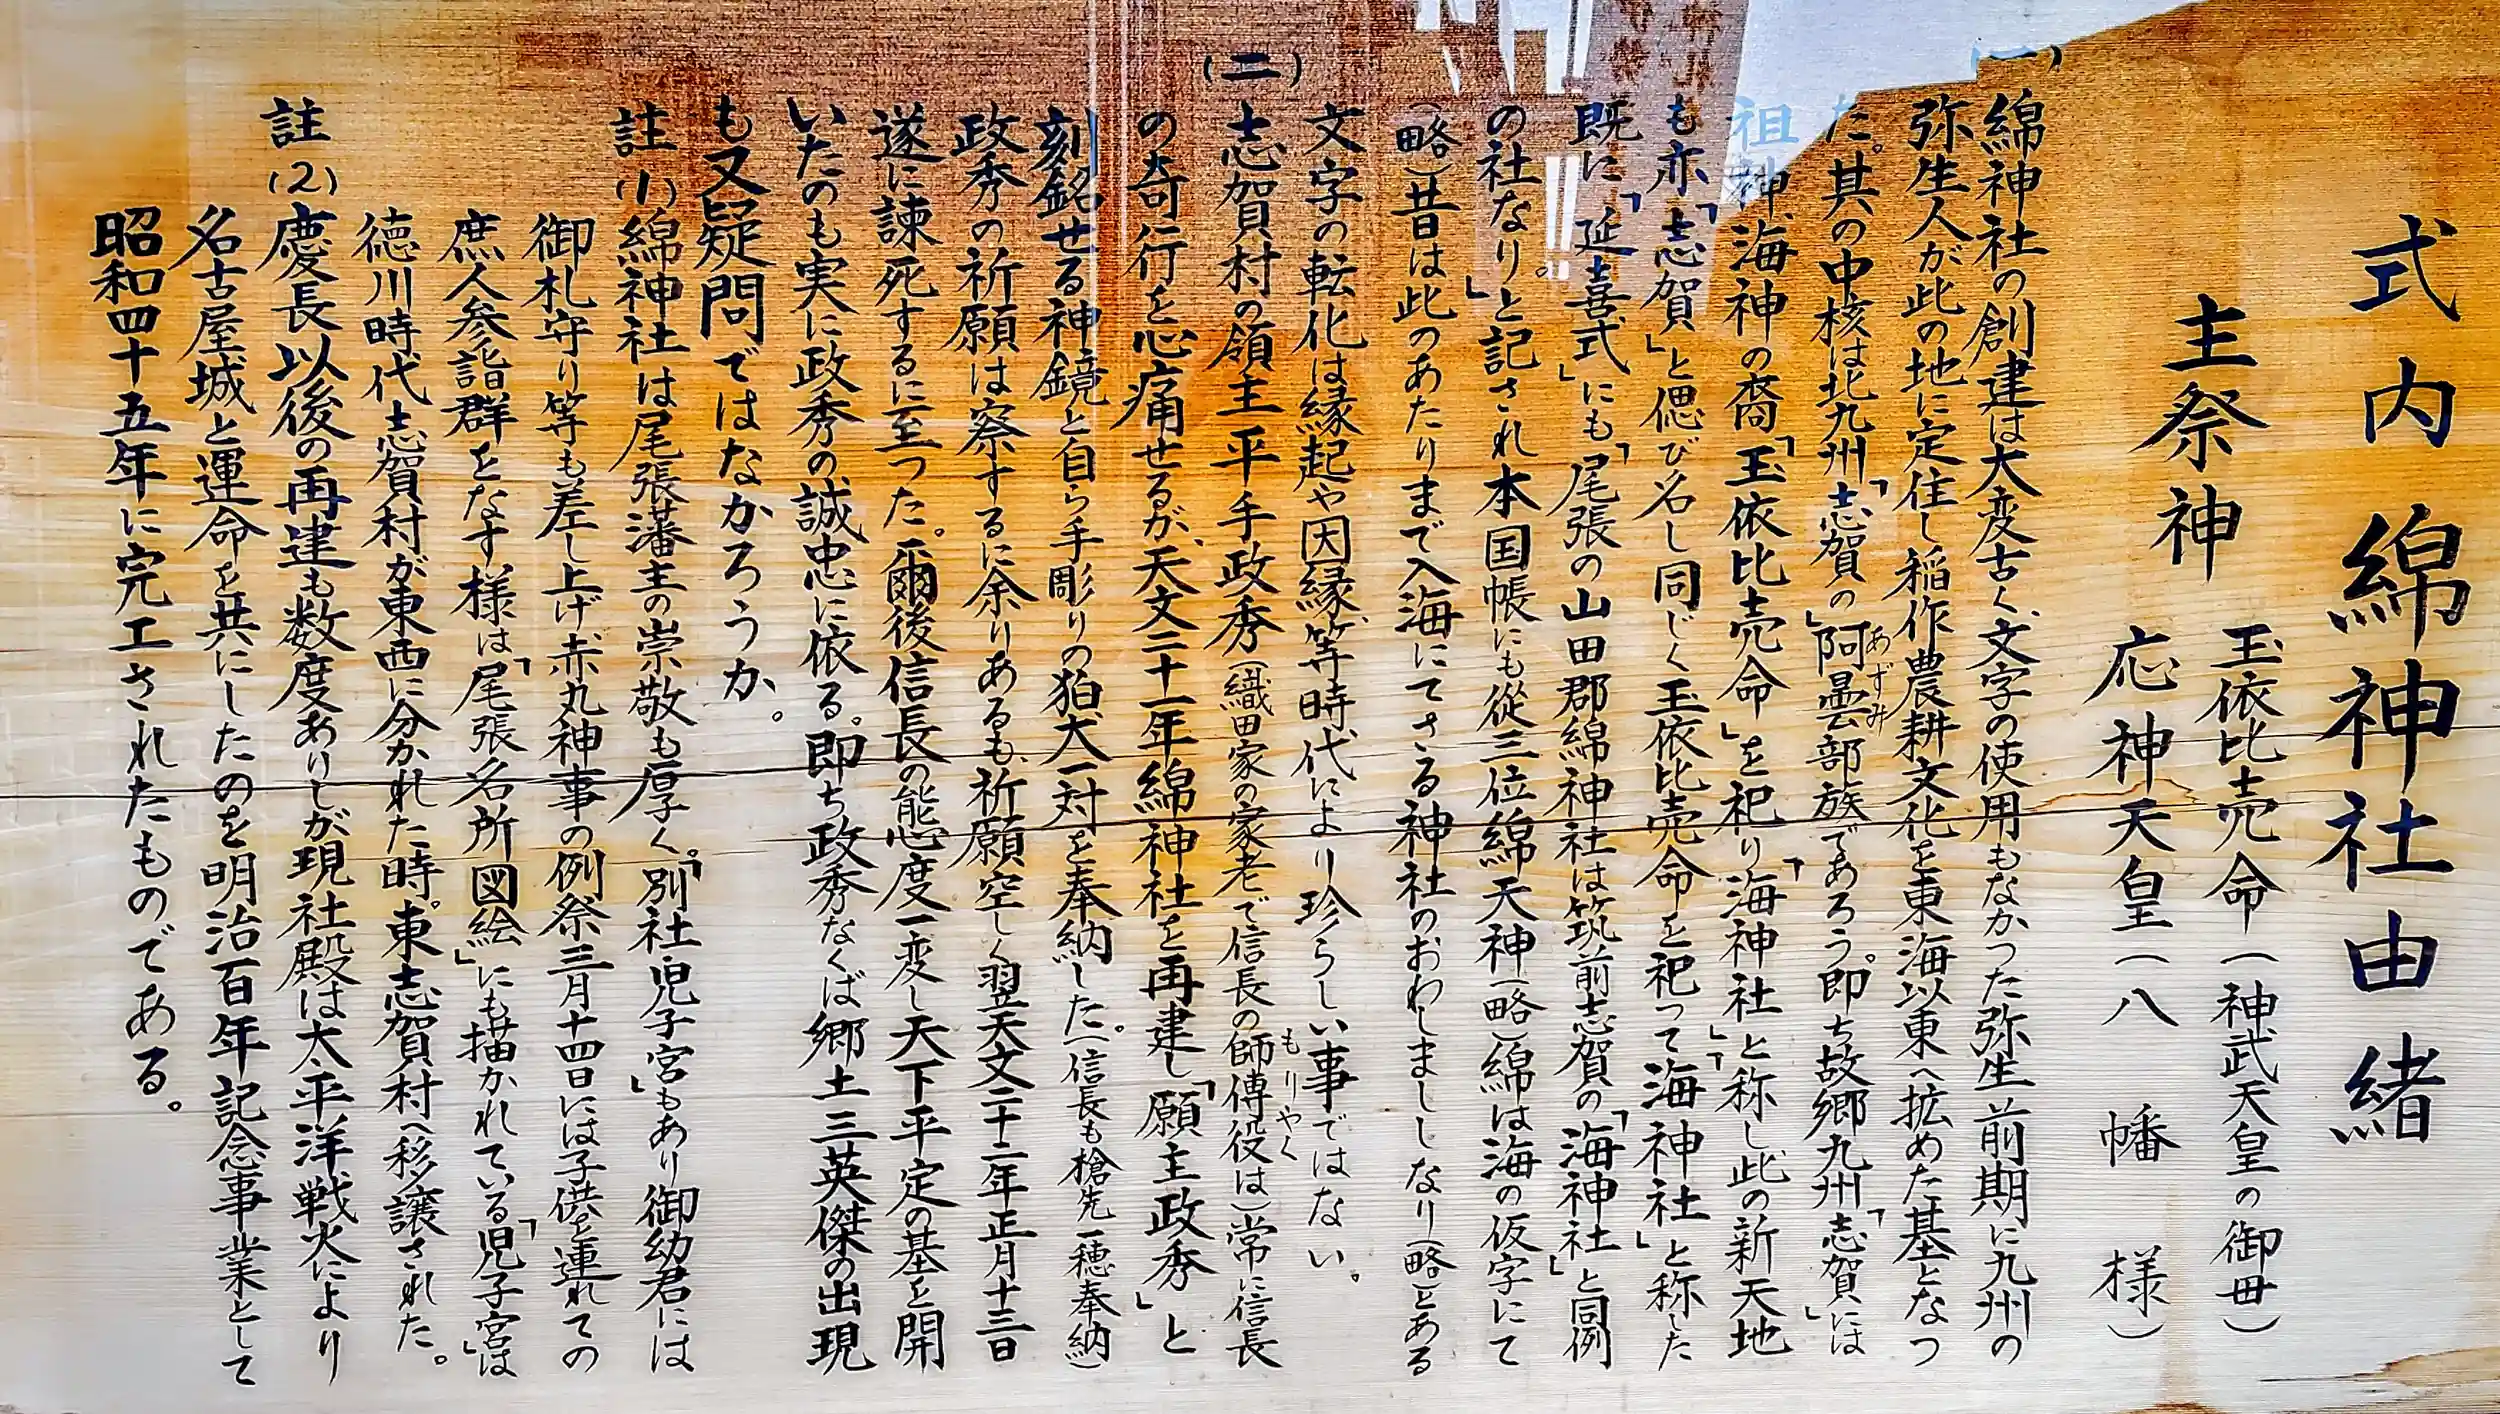 式内綿神社由緒
主祭神
玉依比売命(神武天皇の御母)
応神天皇(八幡様)
(一)
綿神社の創建は大変古く、文字の使用もなかった弥生前期に九州の
弥生人が此の地に定住し稲作農耕文化を東海以東へ拡めた基となっ
た。其の中核は北九州「志賀の」阿曇部族であろう。即ち故郷九州「志賀」には
あずみ
祖神、海神の裔「玉依比売命」を祀り「海神社」と称し此の新天地
も亦「志賀」と偲び名し同じく玉依比売命を祀って「海神社」と称した
既に「延喜式」にも「尾張の山田郡綿神社は筑前志賀の「海神社」と同例
の社なり。」と記され本国帳にも従三位綿天神(略)綿は海の仮字にて
(略)昔は此のあたりまで入海にてさる神社のおわしまししなり(略)とある
文字の転化は縁起や因縁、等時代により珍らしい事ではない。
(二)
志賀村の領主平手政秀(織田家の家老で信長の師傅役は)常に信長
もりやく
の奇行を心痛せるが、天文二十一年綿神社を再建し「願主政秀」と
刻銘せる神鏡と自ら手彫りの狛犬一対を奉納した。(信長も槍先一穂奉納)
政秀の祈願は察するに余りあるも、祈願空しく翌天文二十二年正月十三日
遂に諫死するに至った。爾後信長の態度一変し天下平定の基を開
いたのも実に政秀の誠忠に依る。即ち政秀なくば郷土三英傑の出現
も又疑問ではなかろうか。
註(1)綿神社は尾張藩主の崇敬も厚く。「別社児子宮」もあり御幼君には
御札守り等も差し上げ、赤丸神事の例祭三月十四日には子供を連れての
庶人参詣群をなす様は「尾張名所図絵」にも描かれている「児子宮」は
徳川時代志賀村が東西に分かれた時。東志賀村へ移譲された。
註(2)慶長以後の再建も数度ありしが現社殿は太平洋戦火により
名古屋城と運命を共にしたのを明治百年記念事業として
昭和四十五年に完工されたものである。